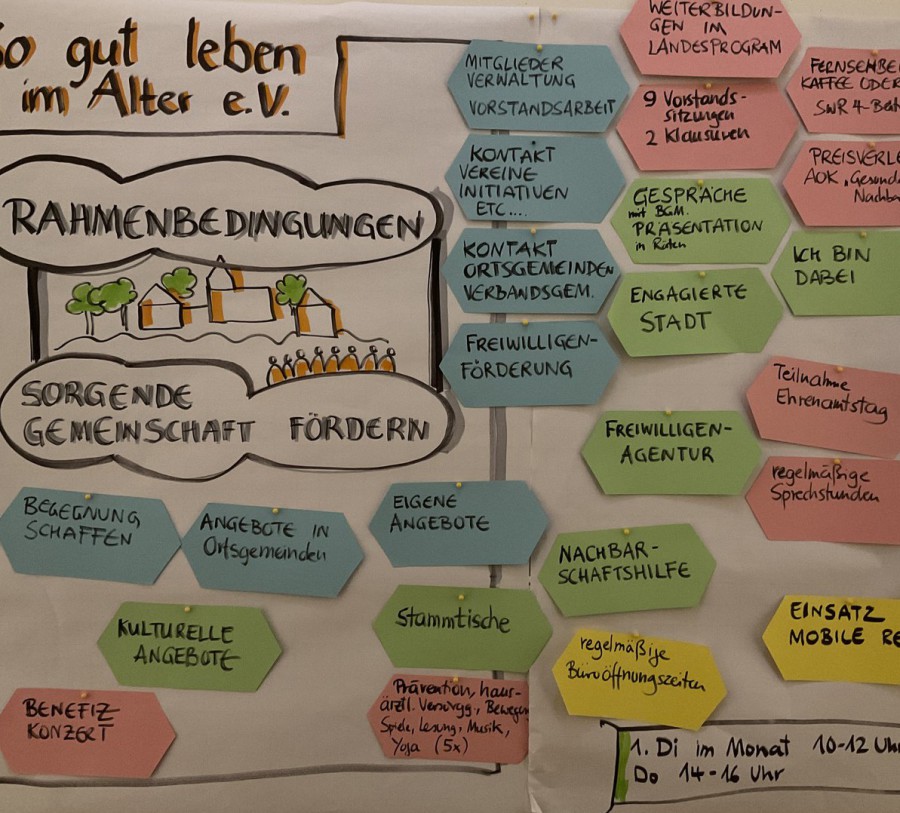 So gut leben
im Alter e.V.
RAHMENBEDINGUNGEN
SORGENDE
GEMEINSCHAFT FÖRDERN
MITGLIEDER
VERWALTUNG
VORSTANDSARBEIT
KONTAKT
VEREINE
INITIATIVEN
ETC....
KONTAKT
ORTSGEMEINDEN
VERBANDSGEM.
FREIWILLIGEN-
FÖRDERUNG
WEITERBILDUN-
GEN IM
LANDESPROGRAM
9 Vorstands-
sitzungen
2 Klausuren
GESPRÄCHE
mit BGM.
PRÄSENTATION
in Räten
ENGAGIERTE
STADT
FERNSEHBEI
KAFFEE ODER
SWR 4-Beit
PREISVERLE
AOK "Gesunde
Nachba
ICH BIN
DABEI
Teilnahme
Ehrenamtstag
FREIWILLIGEN-
AGENTUR
regelmäßige
Sprechstunden
BEGEGNUNG
SCHAFFEN
ANGEBOTE IN
Ortsgemeinden
EIGENE
ANGEBOTE
NACHBAR-
SCHAFTSHILFE
KULTURELLE
ANGEBOTE
Stammtische
regelmäßije
Büroöffnungszeiten
EINSATZ
MOBILE RE
BENEFIZ
KONZERT
Prävention, haus-
ärztl. Versorgg., Bewegun
Spiele, Lesung, Musik,
Yoga (5x)
1. Di im Monat 10-12 Uhr
Do 14-16 Uhr